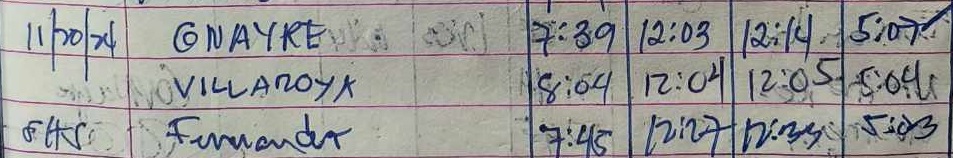 11/20/24 GNAYRE 7:39 12:03 12:14 5:07
VILLAROYA 8:04 12:04 12:05 5:04
Fernandez 7:45 12:27 12:33 5:03